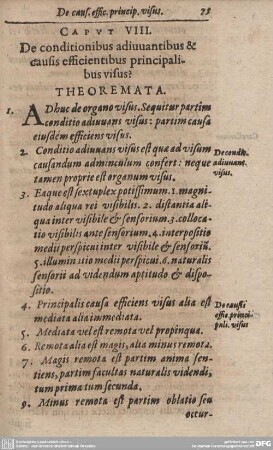 De caus. effic. princip. visus. 75
CAPVT VIII.
De conditionibus adiuuantibus &
causis efficientibus principali-
bus visus?
THEOREMATA.
1. ADhuc de organo visus. Sequitur partim
conditio adiuuans visus: partim causa
eiusdem efficiens visus.
2. Conditio adiuuans visus est quæ ad visum
causandum adminculum confert: neque
tamen proprie est organum visus.
De condit.
adiuuant.
visus.
3. Eaque est sextuplex potissimum. 1. magni-
tudo aliqua rei visibilis. 2. distantia ali-
qua inter visibile & sensorium. 3. colloca-
tio visibilis ante sensorium. 4. interpositio
medii perspicui inter visibile & sensoriũ.
5. illuminatio medii perspicui. 6. naturalis
sensorii ad videndum aptitudo & dispo-
sitio.
4. Principalis causa efficiens visus alia est
mediata alia immediata.
De causis
effic. princi-
pali. visus
5. Mediata vel est remota vel propinqua.
6. Remota alia est magis, alia minus remota.
7. Magis remota est partim anima sen-
tiens, partim facultas naturalis videndi,
tum prima tum secunda.
9. Minus remota est partim oblatio seu
occur-